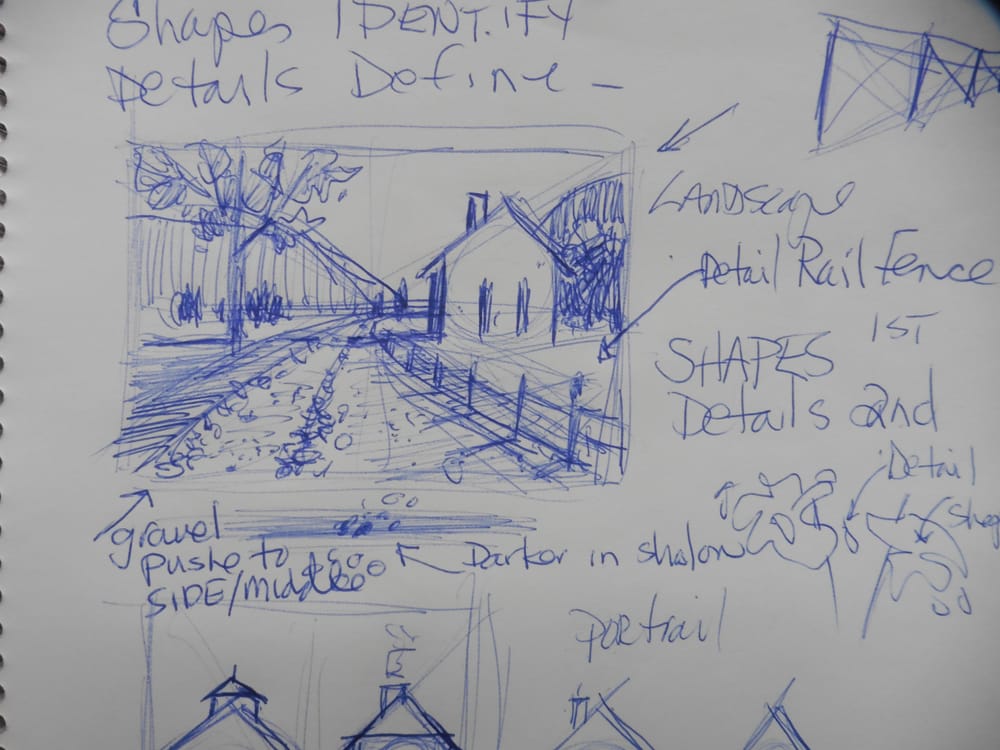 Shapes IDENT.IFY
Details Define -
LANDscape
Detail Rail Fence
SHAPES 1ST
Details 2nd
Detail
gravel
pushe to
SIDE/middle
Darker in shadow
portrail